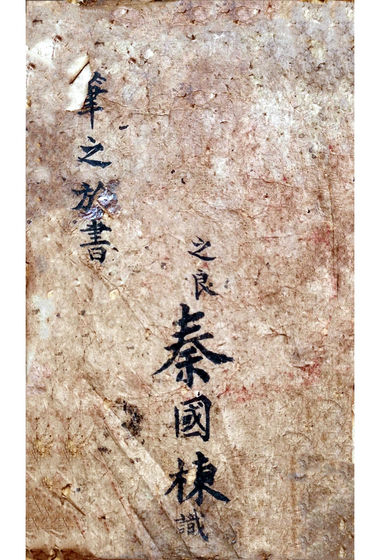 之良秦國棟識
筆之於書